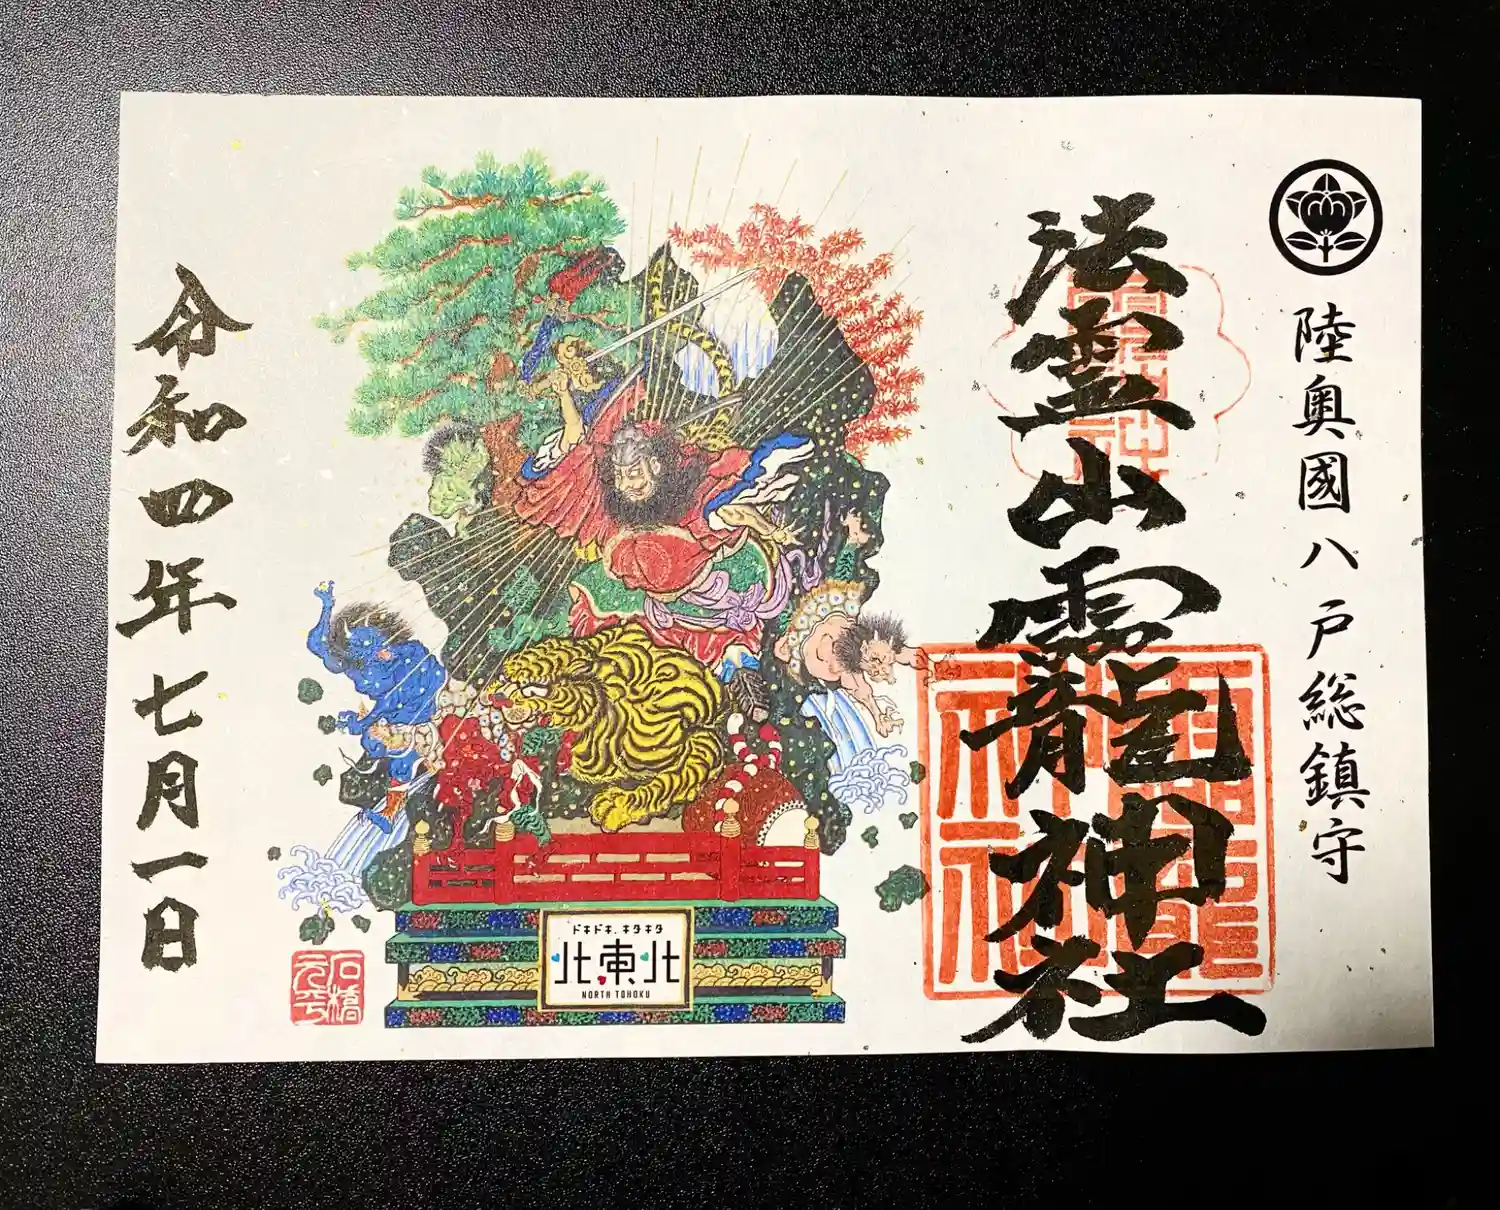 陸奥國八戸総鎮守
法霊山龗神社
ドキドキ、キタキタ
北東北
NORTH TOHOKU
石橋
元平
令和四年七月一日